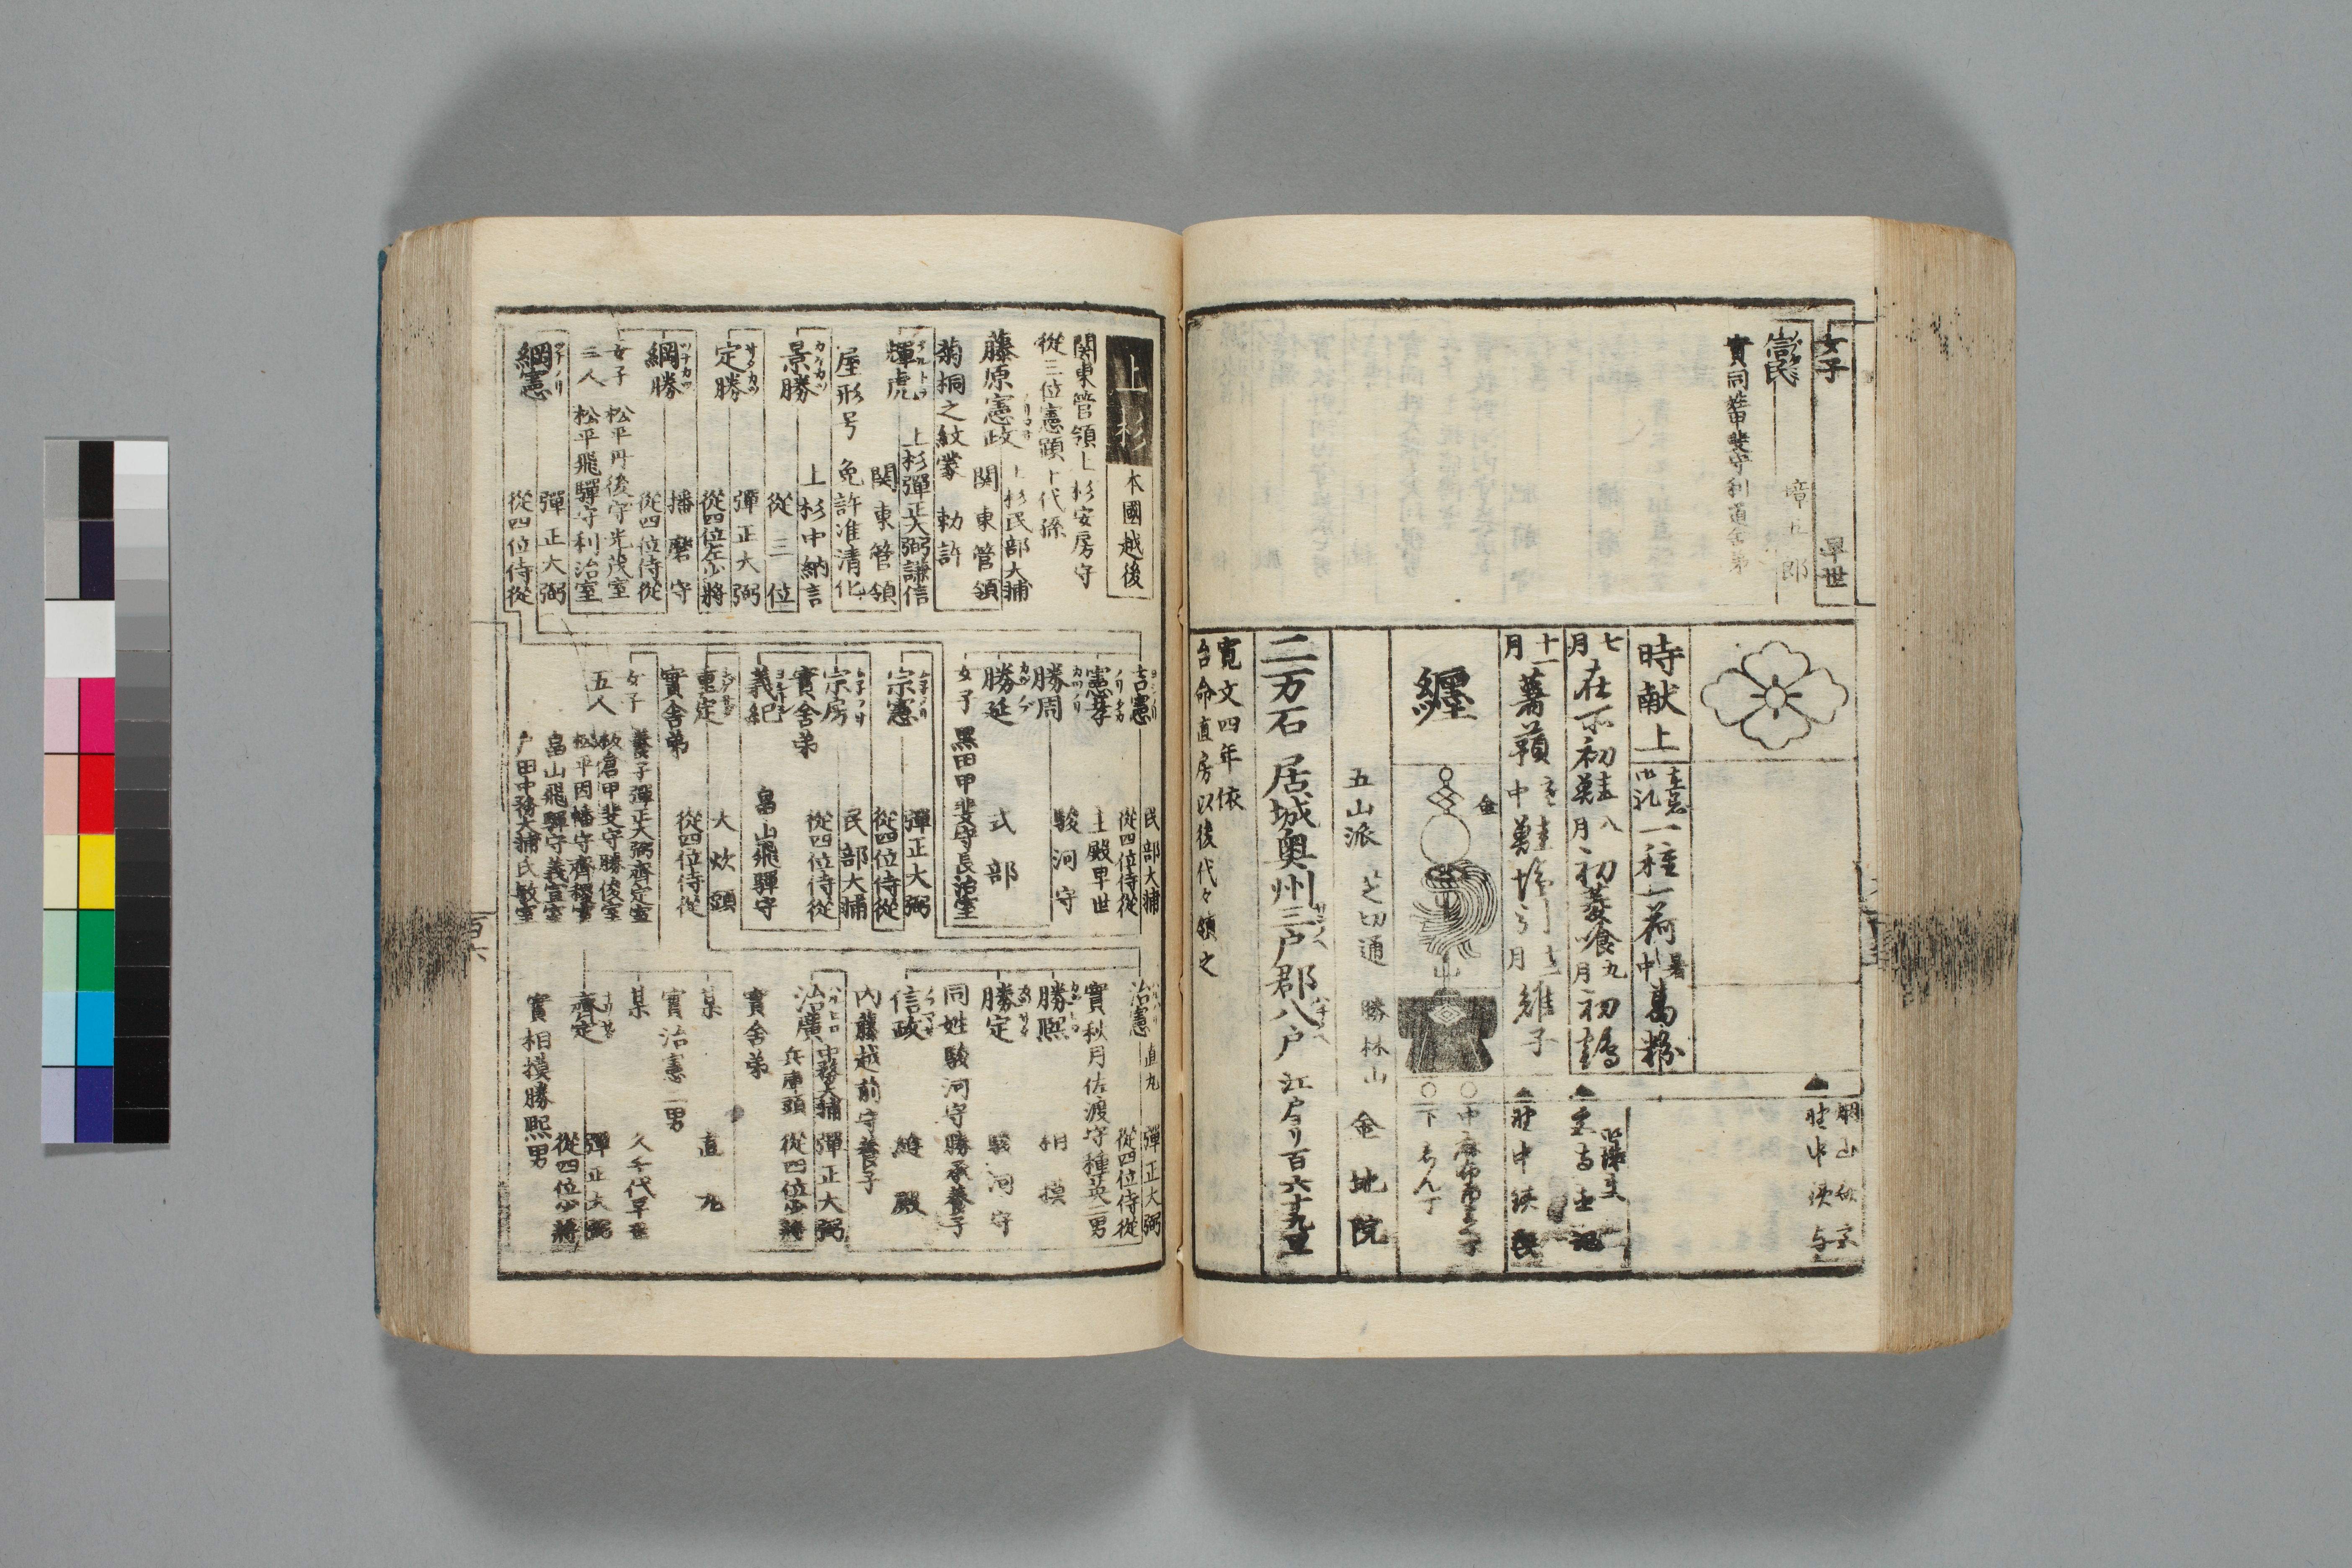 女子
早世
實同姓甲斐守利道舎弟
時献上
一種一荷
暑中
葛粉
七月
在所初鮭
八月
初菱喰
九月
初鶴
十一月
薯蕷
寒中
鮭塩引
雉子
纏
金
五山派
芝切通
勝林山
金地院
二万石
居城奥州三戸郡八戸
江戸ヨリ百六十九里
寛文四年依
台命直房以後代々領之
上杉
本國越後
関東管領上杉安房守
從三位憲顕十代孫
藤原憲政
上杉民部大輔
関東管領
菊桐之紋蒙勅許
輝虎
上杉彈正大弼謙信
関東管領
屋形号
免許准清化
景勝
上杉中納言
從三位
定勝
彈正大弼
從四位左少将
綱勝
播磨守
從四位侍從
女子
三人
松平丹後守光茂室
松平飛驒守利治室
綱憲
彈正大弼
從四位侍從
吉憲
民部大輔
從四位侍從
憲孝
主殿早世
勝周
駿河守
勝延
式部
女子
黒田甲斐守長治室
宗憲
彈正大弼
從四位侍從
宗房
民部大輔
從四位侍從
實舎弟
義紀
畠山飛驒守
重定
大炊頭
從四位侍從
實舎弟
女子
五人
養子彈正大弼齊定室
板倉甲斐守勝俊室
松平因幡守齊稷室
畠山飛驒守義宣室
戸田中務大輔氏敏室
治憲
直丸
彈正大弼
從四位侍從
實秋月佐渡守種英二男
勝熙
相模
勝定
駿河守
同姓駿河守勝承養子
信政
縫殿
内藤越前守養子
治廣
中務大輔
兵庫頭
彈正大弼
從四位少将
實舎弟
某
直丸
實治憲二男
某
久千代早世
齊定
彈正大弼
從四位少将
實相模勝熙男